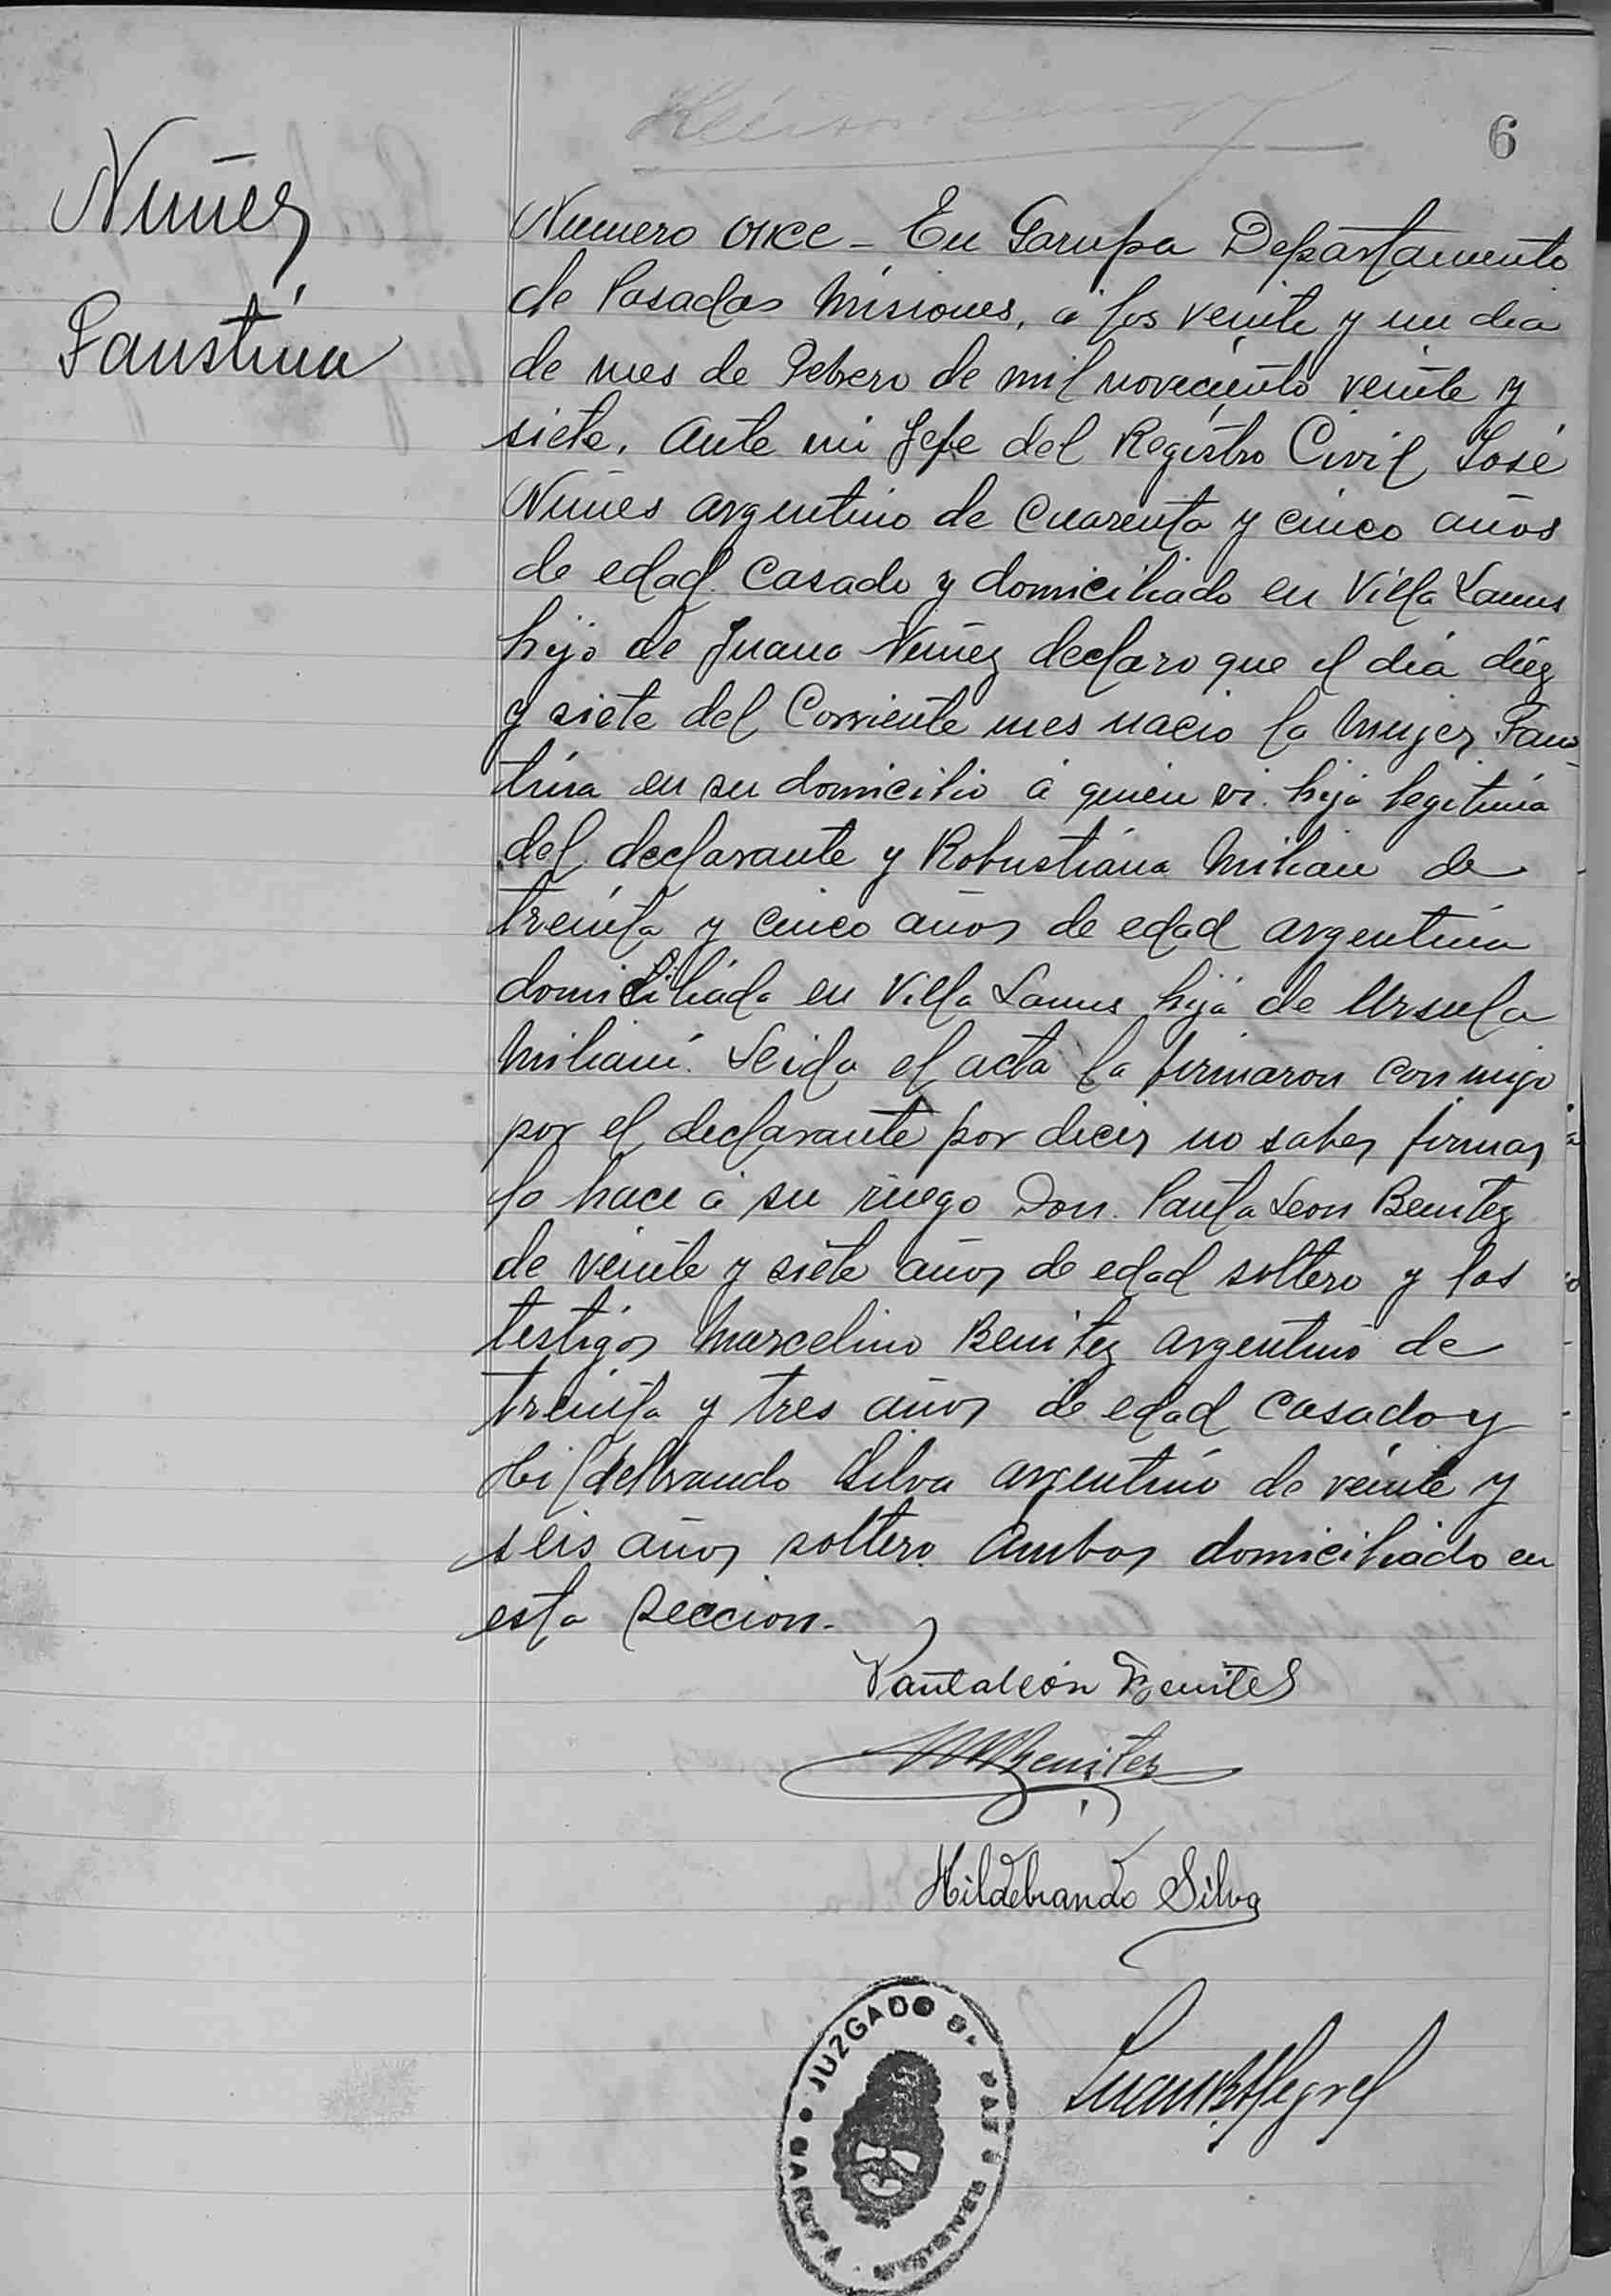 6
Nuñez
Faustina
Numero once - En Garupa Departamento
de Posadas Misiones, á los veinte y un dia
de mes de Febrero de mil noveciento veinte y
siete. Ante mi Jefe del Registro Civil José
Nuñes argentino de cuarenta y cinco años
de edad casado y domiciliado en Villa Lanus
hijo de Juana Nuñez declaro que el dia diez
y siete del Corriente mes nacio la mujer Faus-
tina en su domicilio á quien vi. hija legitima
del declarante y Robustiana Milian de
treinta y cinco años de edad argentina
domiciliada en Villa Lanus hija de Ursula
Miliani. Leida el acta la firmaron conmigo
por el declarante por decir no saber firmar
lo hace á su ruego Don. Panta Leon Benitez
de veinte y siete años de edad soltero y los
testigos Marcelino Benitez argentino de
treinta y tres años de edad casado y
Hildebrando Silva argentino de veinte y
seis años soltero Ambos domiciliado en
esta Seccion.-
Pantaleón Benites
MBenitez
Hildebrando Silva
JUZGADO DE PAZ
GARUPA MISIONES
Juan B Alegre